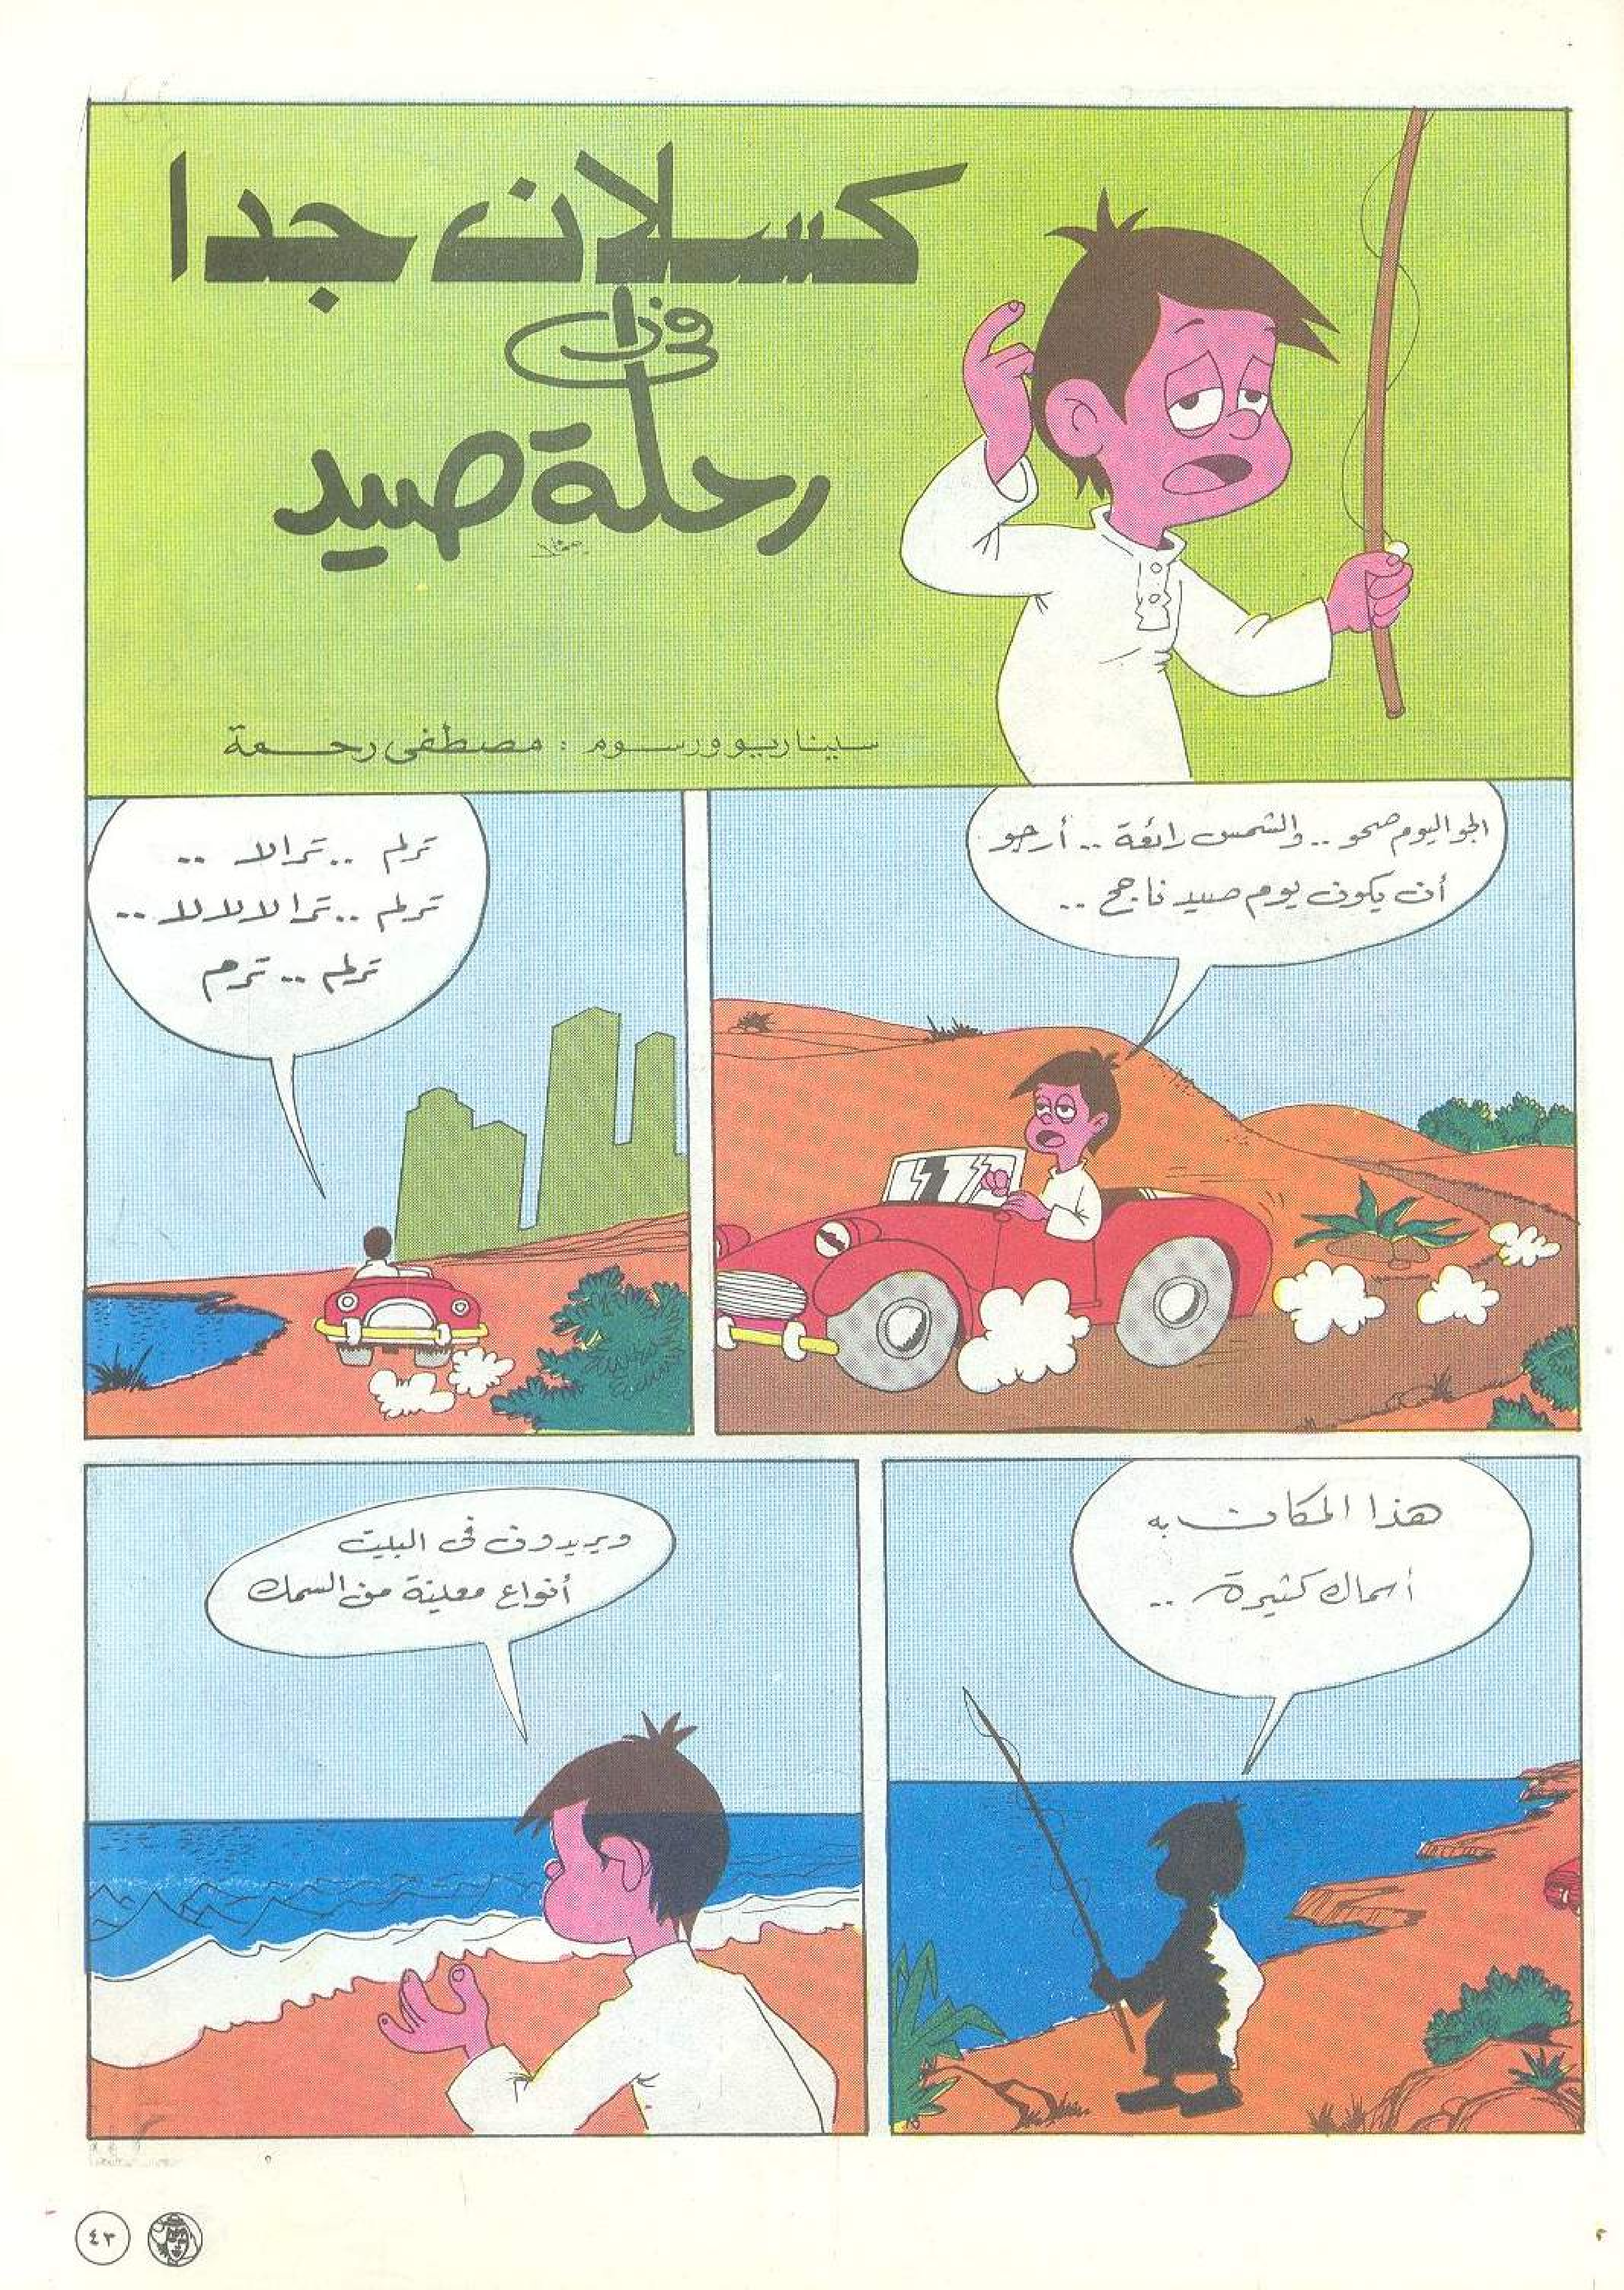 كسلان جدا
في
رحلة صيد
سيناريو ورسوم : مصطفى رحمة
الجو اليوم صحو .. والشمس رائعة .. أرجو
أن يكون يوم صيد ناجح ..
ترلم .. ترالا ..
ترلم .. ترا لالالالا ..
ترلم .. ترم
هذا المكان به
أسماك كثيرة ..
ويريدون في البيت
أنواع معينة من السمك
٤٣